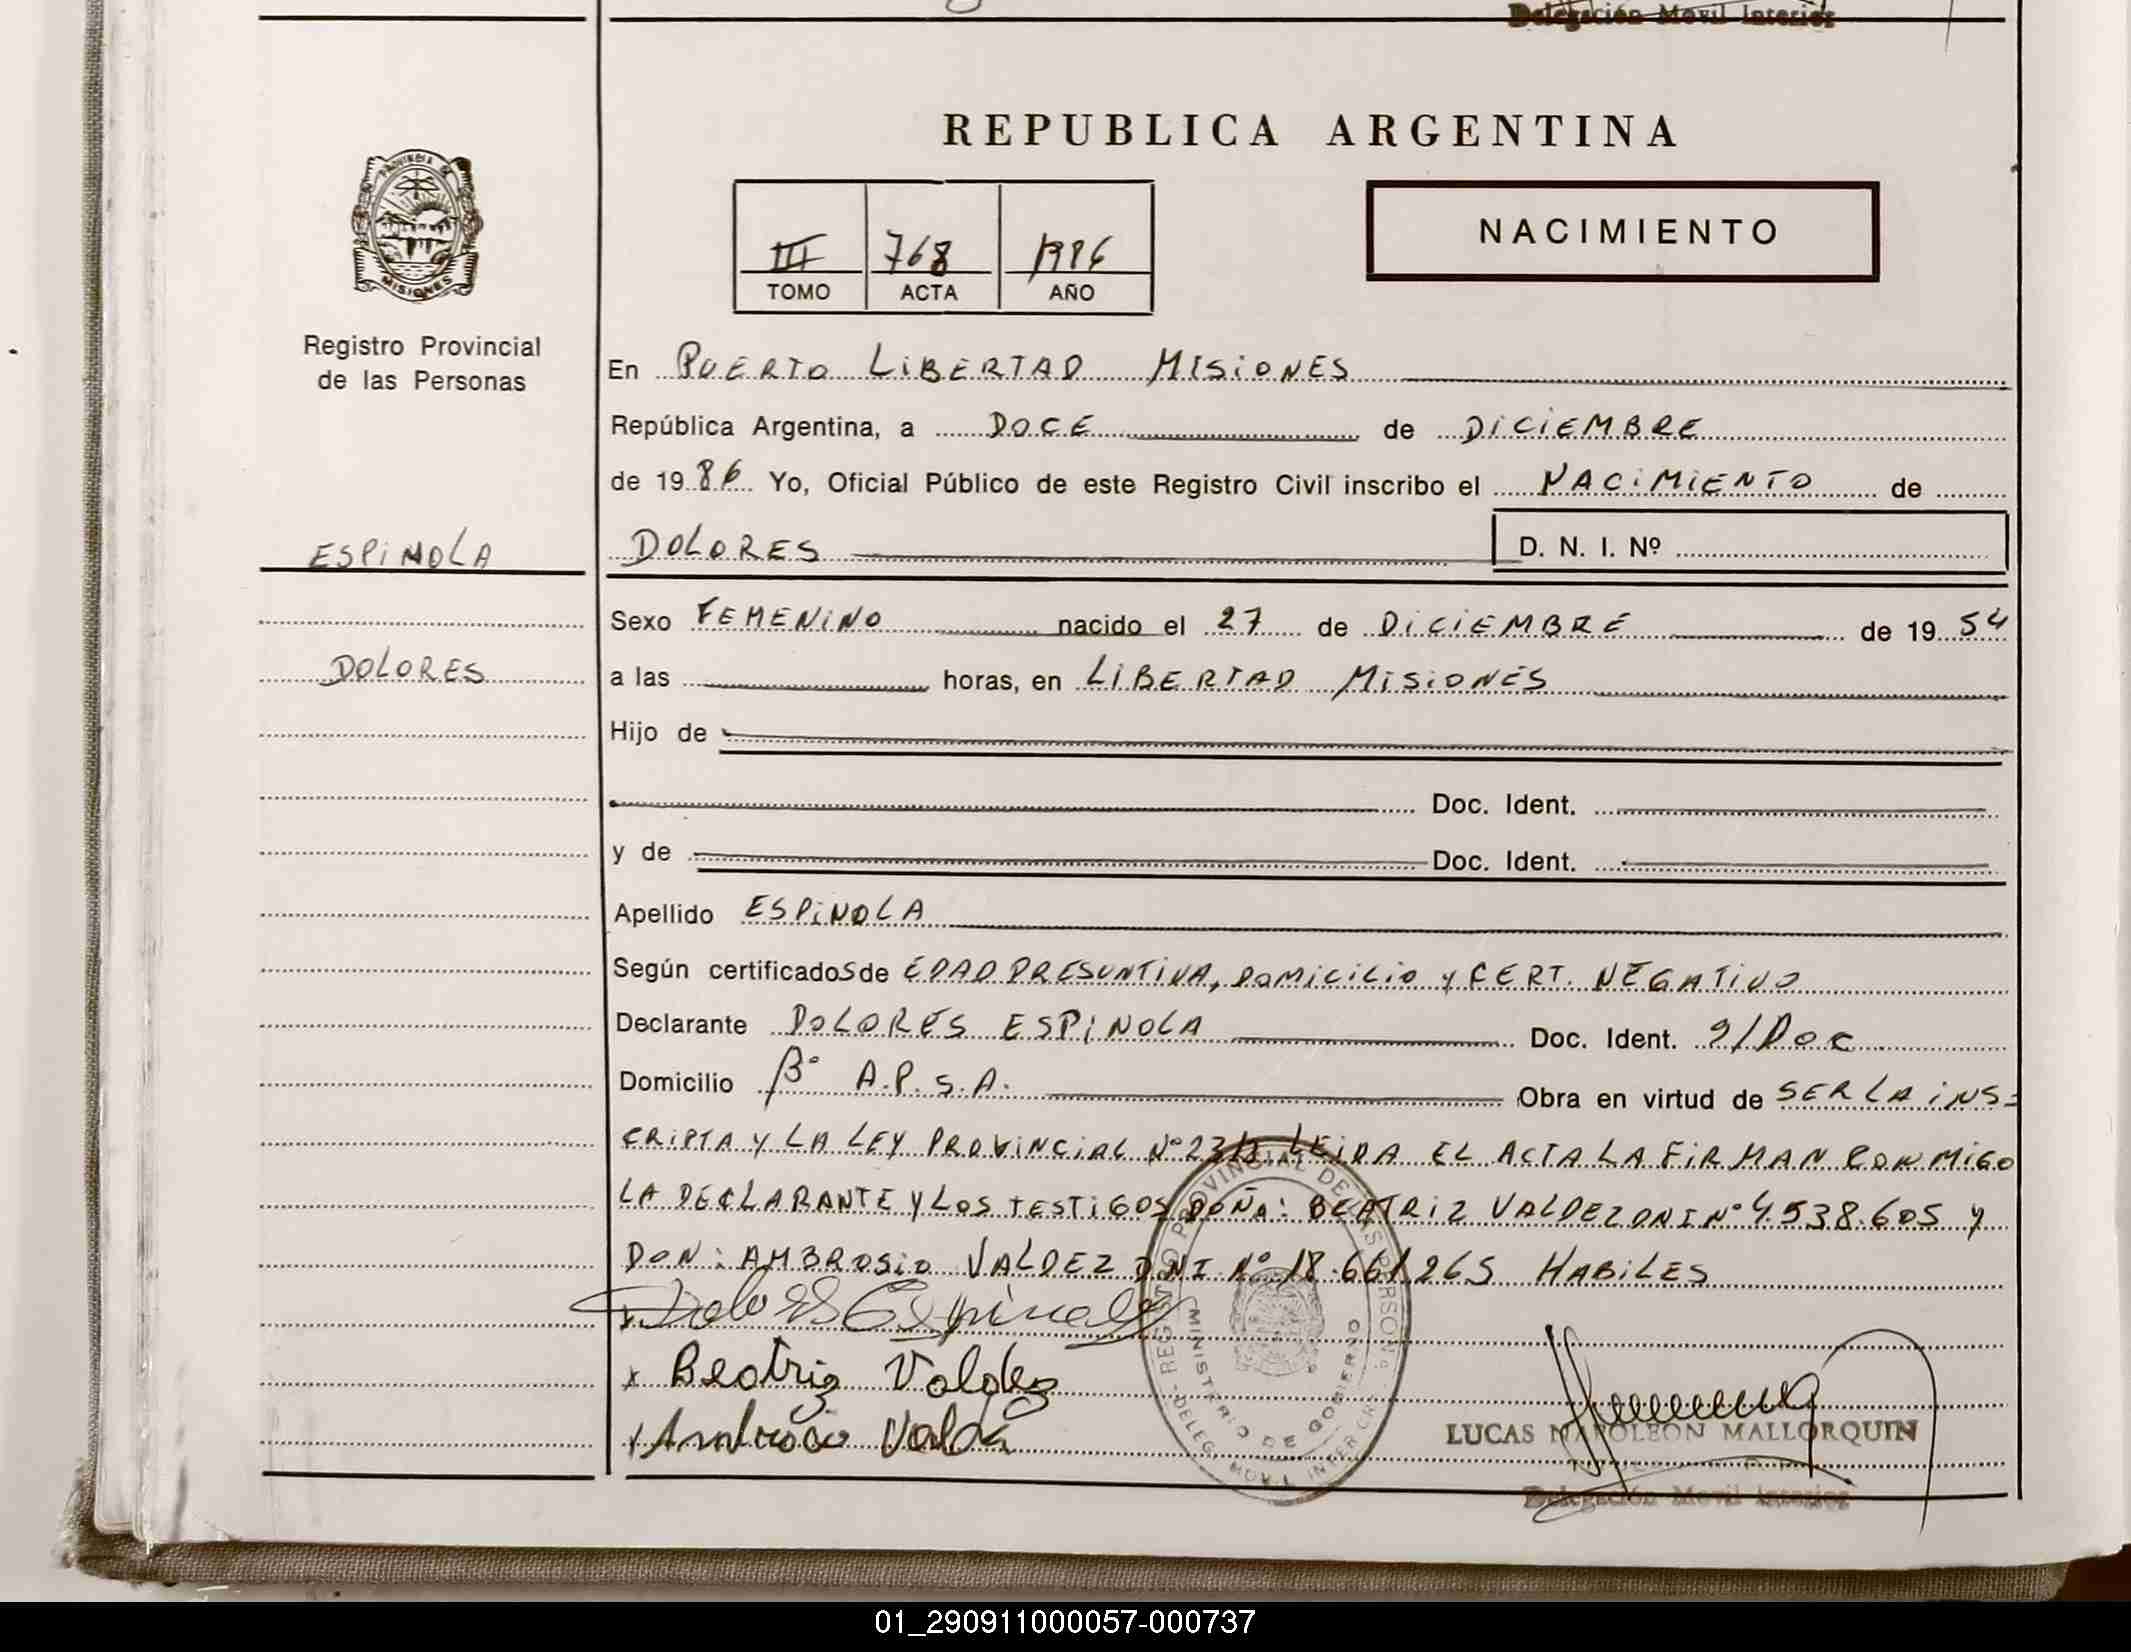 Delegación Movil Interior
REPUBLICA ARGENTINA
PROVINCIA DE
MISIONES
III 768 1986
TOMO ACTA AÑO
NACIMIENTO
Registro Provincial
de las Personas
En PUERTO LIBERTAD MISIONES
República Argentina, a DOCE de DICIEMBRE
de 1986 Yo, Oficial Público de este Registro Civil inscribo el NACIMIENTO de
ESPINOLA
DOLORES D. N. I. Nº
Sexo FEMENINO nacido el 27 de DICIEMBRE de 1954
DOLORES
a las horas, en LIBERTAD MISIONES
Hijo de
Doc. Ident.
y de Doc. Ident.
Apellido ESPINOLA
Según certificados de EDAD PRESUNTIVA, DOMICILIO y CERT. NEGATIVO
Declarante DOLORES ESPINOLA Doc. Ident. S/Doc
Domicilio B° A.P.S.A. Obra en virtud de SER LA INS=
CRIPTA Y LA LEY PROVINCIAL N° LEIDA EL ACTA LA FIRMAN CONMIGO
LA DECLARANTE Y LOS TESTIGOS DOÑA: BEATRIZ VALDEZ DNI N° 4.938.605 y
DON: AMBROSIO VALDEZ DNI N° 18.661.265 HABILES
Dolores Espinola
x Beatriz Valdez
x Ambrosio Valdez
REGISTRO PROVINCIAL DE LAS PERSONAS
MINISTERIO DE GOBIERNO
DELEG. MOVIL INTERIOR
LUCAS NAPOLEON MALLORQUIN
Delegación Movil Interior
01_290911000057-000737